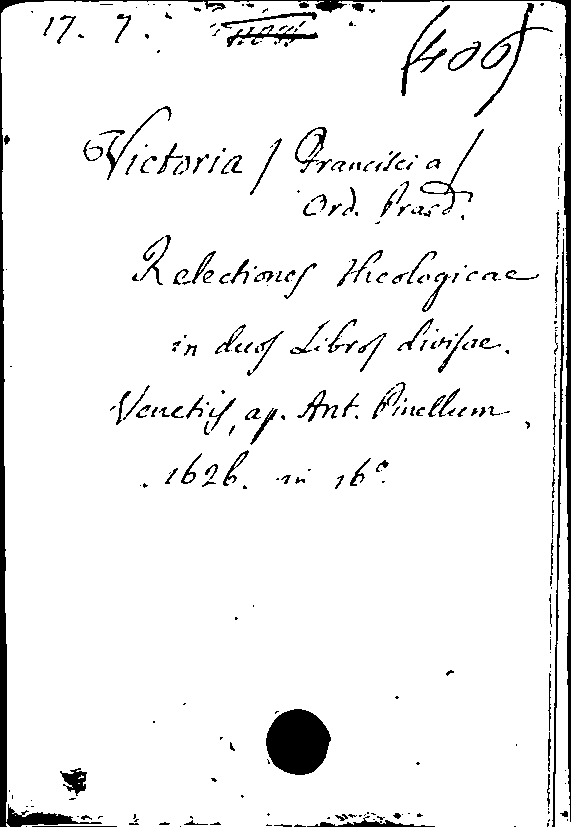 17. 7.
(400)
Victoria / Francisci a /
Ord. Praed.
Relectiones theologicae
in duos Libros divisae.
Venetiis, ap. Ant. Pinellum,
1626. in 16°.